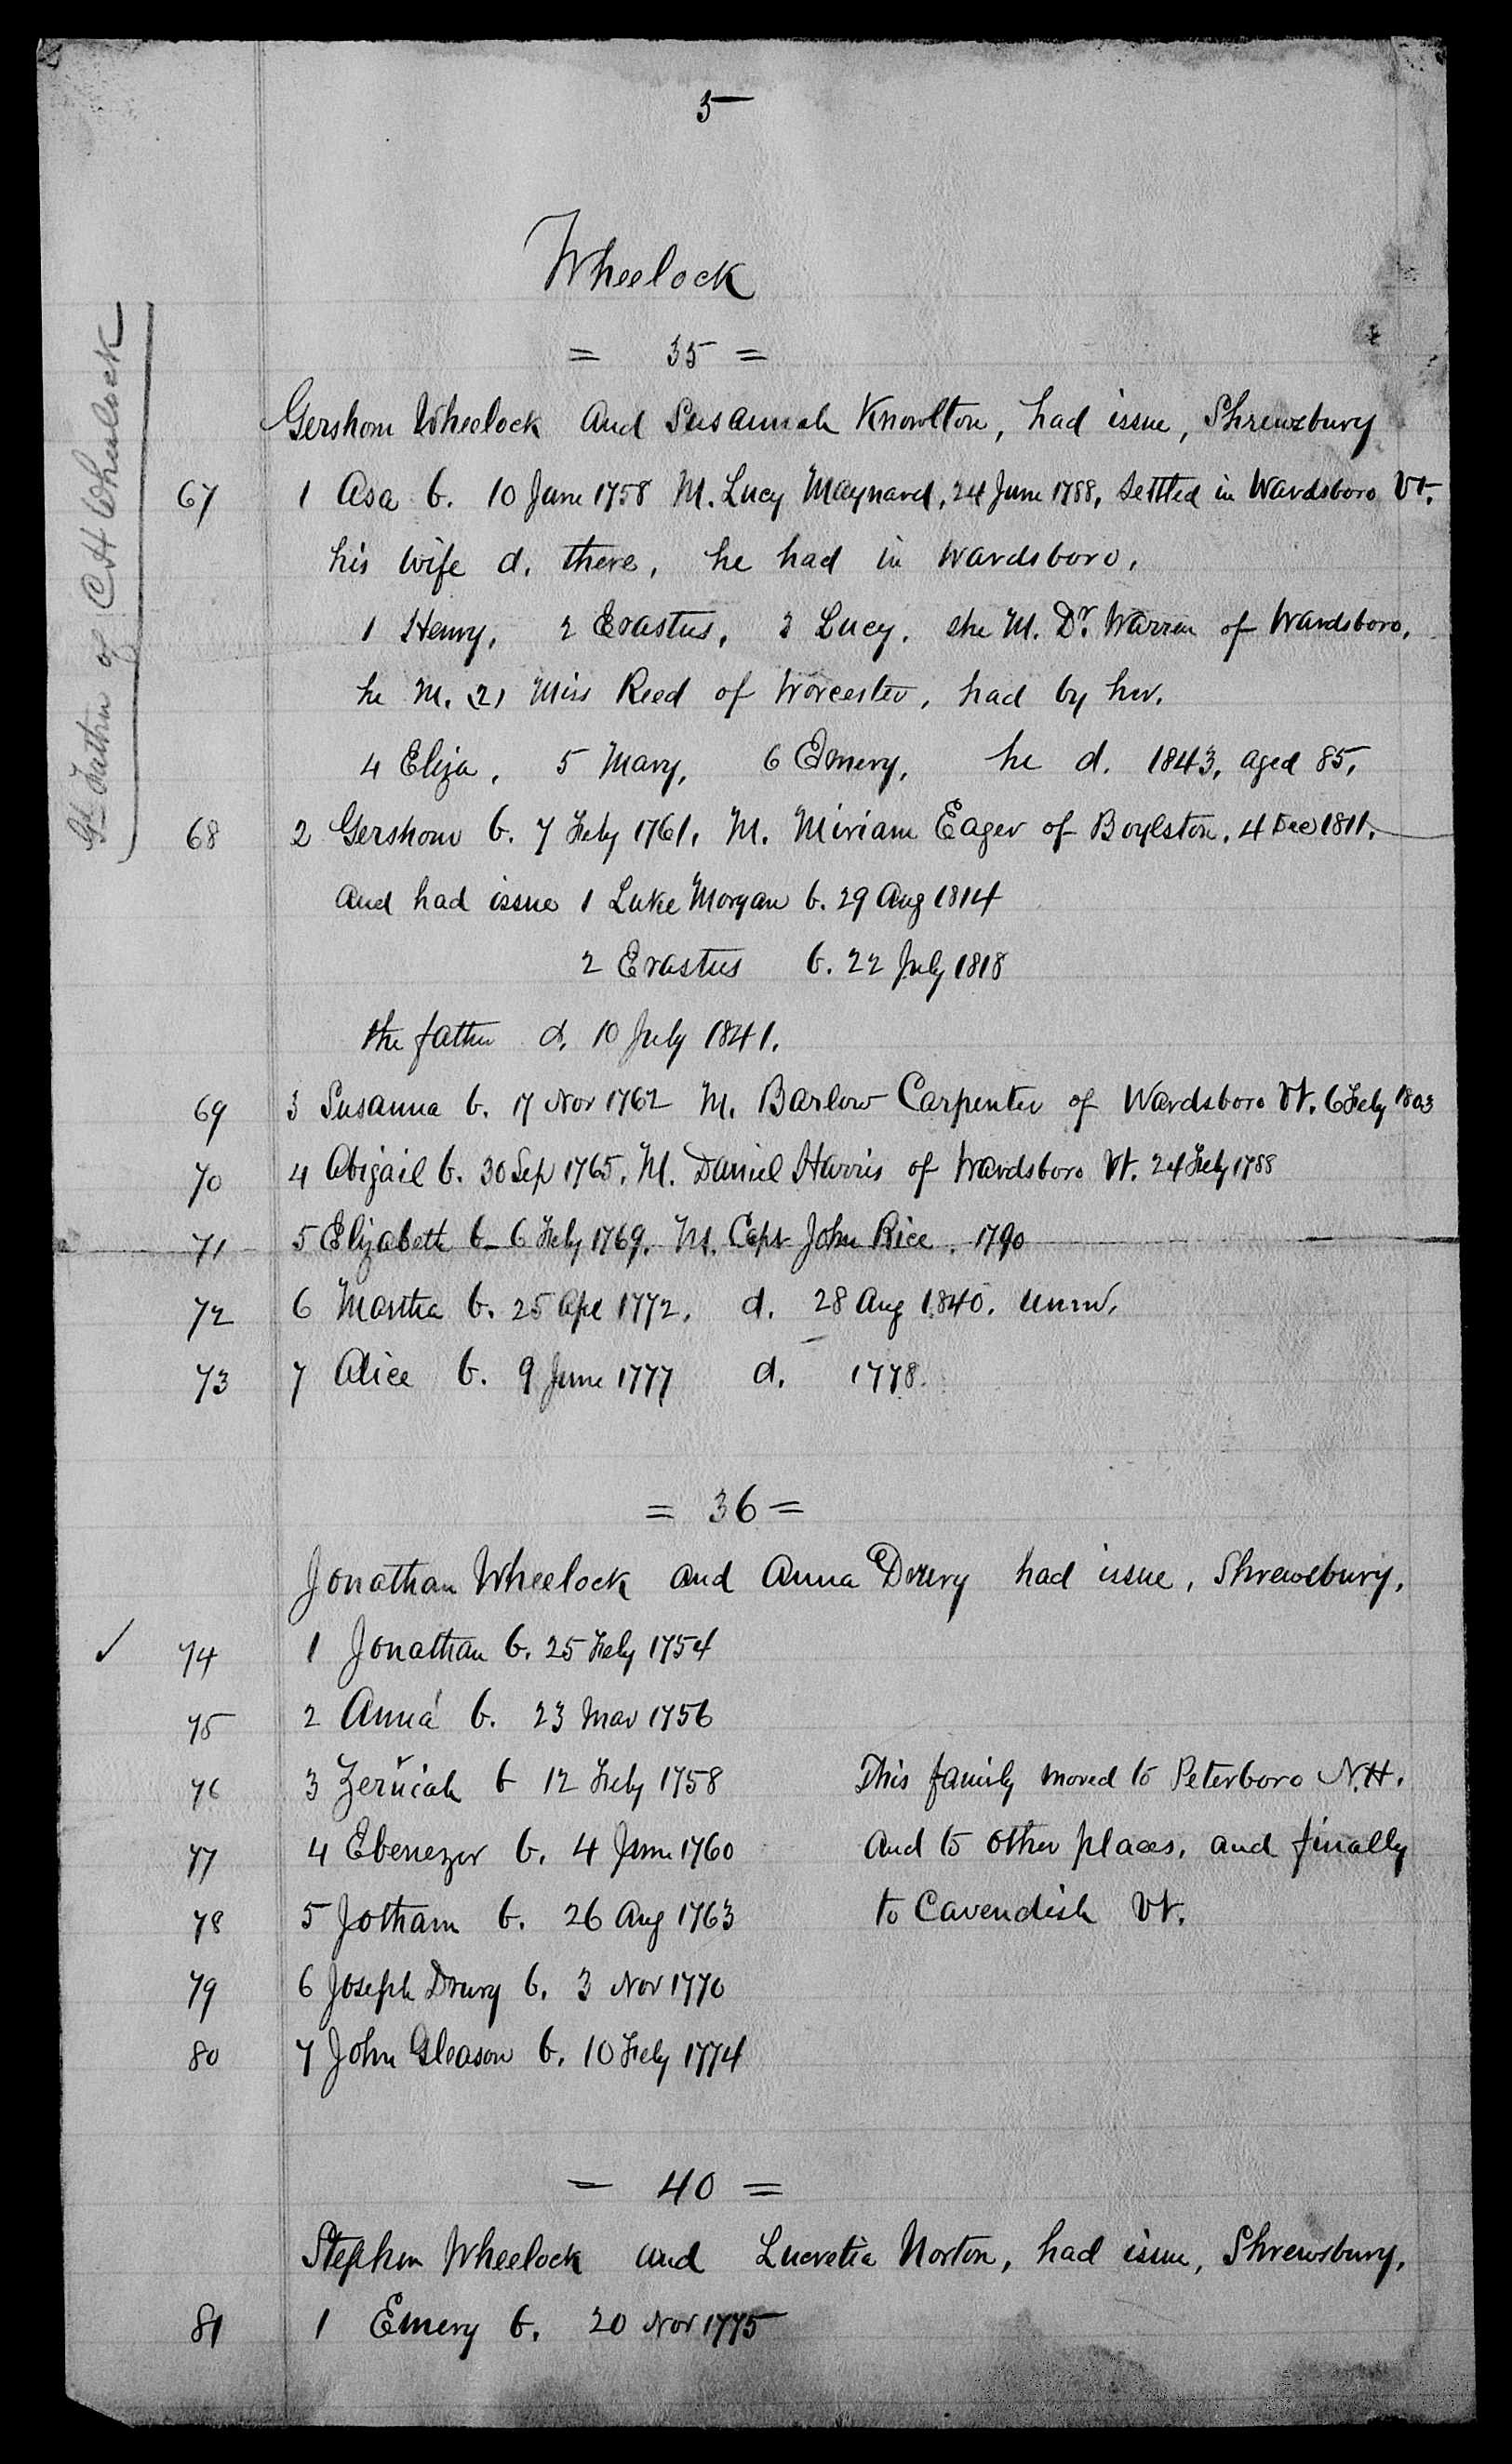 5
Wheelock
= 35 =
Gershom Wheelock and Susannah Knowlton, had issue, Shrewsbury
67 1 Asa b. 10 June 1758 M. Lucy Maynard, 24 June 1788, settled in Wardsboro Vt.
his wife d. there, he had in Wardsboro,
1 Henry, 2 Erastus, 3 Lucy. she M. Dr. Warren of Wardsboro,
he M. (2) Miss Reed of Worcester, had by her.
4 Eliza, 5 Mary, 6 Emery, he d. 1843, aged 85,
68 2 Gershom b. 7 Feby 1761, M. Miriam Eager of Boylston, 4 Dec 1811,
and had issue 1 Luke Morgan b. 29 Aug 1814
2 Erastus b. 22 July 1818
the father d. 10 July 1841.
69 3 Susanna b. 17 Nov 1762 M. Barlow Carpenter of Wardsboro Vt. 6 Feby 1803
70 4 Abigail b. 30 Sep 1765, M. Daniel Harris of Wardsboro Vt. 24 Feby 1788
71 5 Elizabeth b 6 Feby 1769. M. Capt John Rice. 1790
72 6 Martha b. 25 Apl 1772, d. 28 Aug 1840. unm.
73 7 Alice b. 9 June 1777 d. 1778.
= 36 =
Jonathan Wheelock and Anna Drury had issue, Shrewsbury,
✓ 74 1 Jonathan b. 25 Feby 1754
75 2 Anna b. 23 Mar 1756
76 3 Zeruiah b 12 Feby 1758 This family moved to Peterboro N.H.
77 4 Ebenezer b. 4 June 1760 and to other places, and finally
78 5 Jotham b. 26 Aug 1763 to Cavendish Vt.
79 6 Joseph Drury b. 3 Nov 1770
80 7 John Gleason b. 10 Feby 1774
= 40 =
Stephen Wheelock and Lucretia Norton, had issue, Shrewsbury,
81 1 Emery b. 20 Nov 1775
Gd Father of C H Wheelock